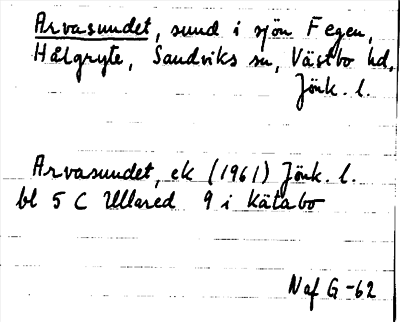 Arvasundet, sund i sjön Fegen,
Hålgryte, Sandviks sn, Västbo hd,
Jönk. l.
Arvasundet, ek (1961) Jönk. l.
bl 5 C Ullared 9 i Kätabo
Naf G-62